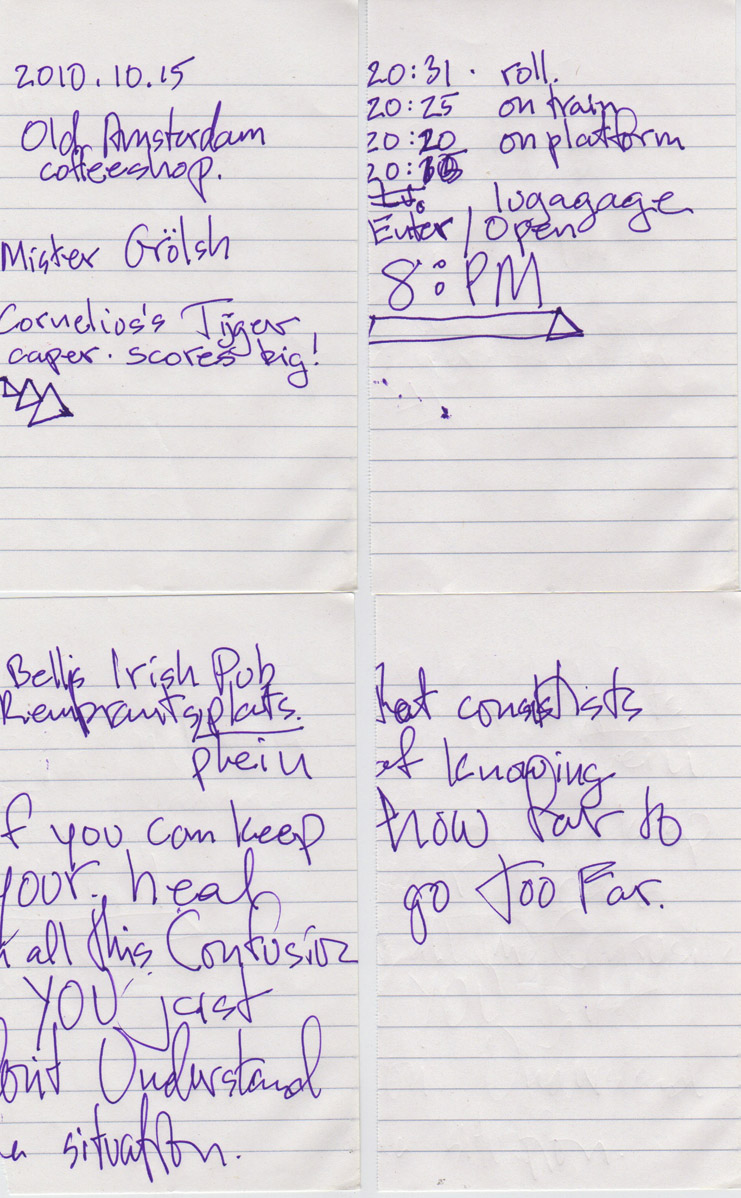 2010.10.15
Old Amsterdam
coffeeshop.
Mister Grölsh
Cornelios's Tijger
caper. scores big!
20:31. roll.
20:25 on train
20:20 on platform
20:
lugagage
Enter / Open
8:PM
Bell's Irish Pub
Rembrantsplats.
plein
f you can keep
your head
all this Confusion
YOU just
dont Understand
situation.
hat consists
of knowing
how far to
go Too Far.